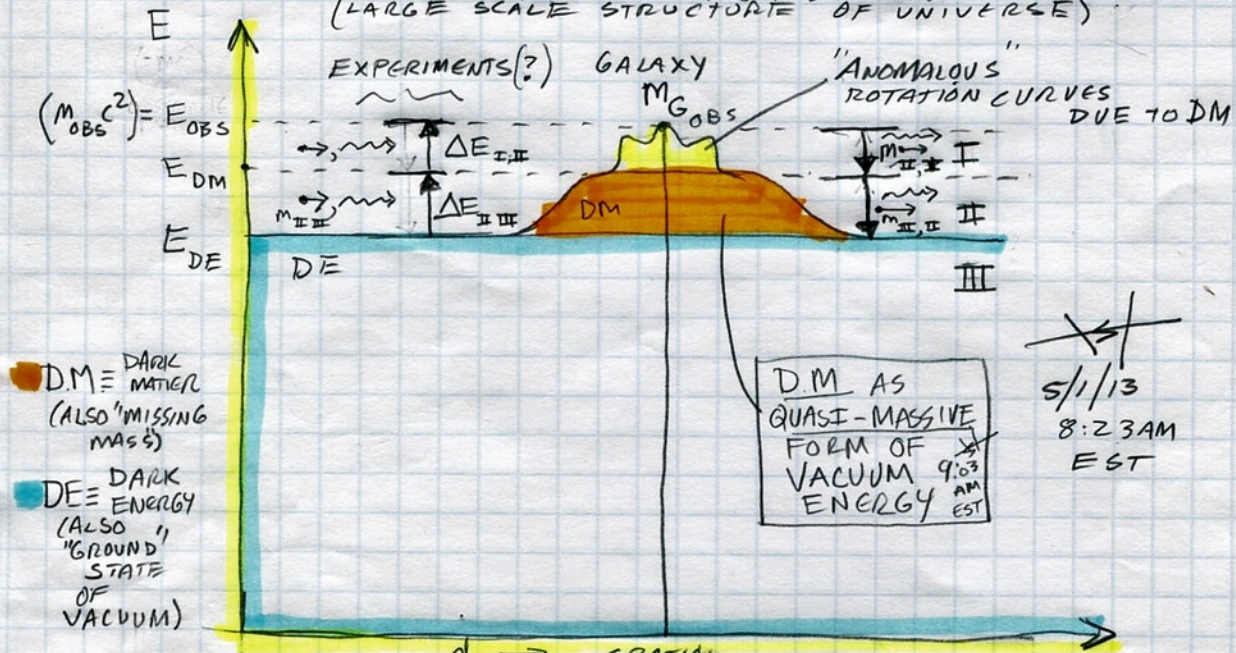 (LARGE SCALE STRUCTURE OF UNIVERSE)
E
EXPERIMENTS(?)
GALAXY
M G OBS
"ANOMALOUS"
ROTATION CURVES
DUE TO DM
(m OBS c²) = E OBS
ΔE I,II
m II,I
I
E DM
m II III
ΔE II III
DM
m III,II
II
E DE
DE
III
D.M ≡ DARK
MATTER
(ALSO "MISSING
MASS)
DE ≡ DARK
ENERGY
(ALSO
"GROUND"
STATE
OF
VACUUM)
D.M AS
QUASI-MASSIVE
FORM OF
VACUUM
ENERGY
9:03
AM
EST
5/1/13
8:23AM
EST